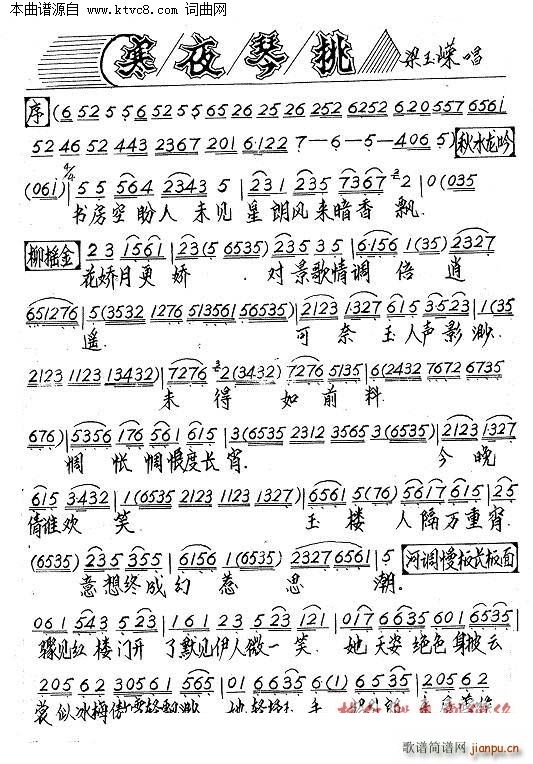 本曲谱源自 www.ktvc8.com 词曲网
寒夜琴挑 梁玉嵘唱
序 (6 52 5 56 52 5 565 26 25 26 252 6252 620557 6561
52 46 52 443 2367 201 6122 7-6-5-4065) 秋水龙吟
(061)|55 564 2343 5|231 235 7367 2|0(035
书房空盼人 未见星朗风来暗香飘.
柳摇金 23 1561|23(5 6535)235 35|6156 1(35)2327
花娇月更娇. 对景歌情调倍逍
651276|5(3532 1276 513561 56535)|2123 1327 615 35323|1(35
遥. 可奈玉人声影渺.
2123 1123 13432)|7276 2(3432)7276 5135|6(2432 7672 6735
未得如前料
676)|5356 176 561 615|3(6535 2312 3565 3(6535)|2123 1327
惆怅惆恨度长宵. 今晚
615 3432|1(6535 2123 1123 1327)|6561 5(76)5617 615|25
倩谁欢笑. 玉楼人隔万重霄.
(6535)235 355|6156 1(6535)2327 6561|5 河调慢板尺板面
意想终成幻惹思潮.
061 543 5 223|161 23 523 121|017 6635 601 6535|
骤见红楼门开 了默见伊人微一笑. 她天姿绝色身披云
20562 30561 565|01 6635 6(1)6535|20562
裳似冰梅傲雪
歌谱简谱网
jianpu.cn